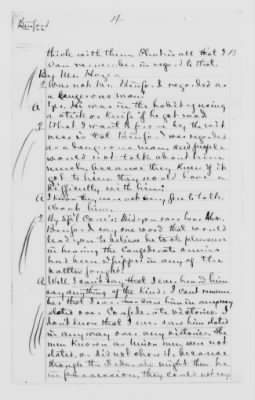 Binford
thick with them. That is all that I
can remember in regard to that.
By Mr. Hays:
Q Was not Mr. Binford regarded as
a dangerous man?
A Yes. He was in the habit of using
a stick or knife if he got mad.
Q What I want to prove by the wit-
ness is that Binford was regarded
as a dangerous man, and people
would not talk about him
much, because they knew if it
got to him they would have a
difficulty with him?
A I know they were not very free to talk
about him.
Q By Sp'l Com'r: Did you ever hear Mr.
Binford say one word that would
lead you to believe he took pleasure
in hearing the Confederate
had been whipped in any of the
battles fought?
A Well I can't say that I ever heard him
say anything of the kind. I can't remem-
ber that I ever saw him in anyway
elated over Confederate victories. I
don't know that I ever saw him elated
in any way over any victories. The
men known as Union men were not
elated, or did not show it, because
though the Federals might then be
in possession, they could